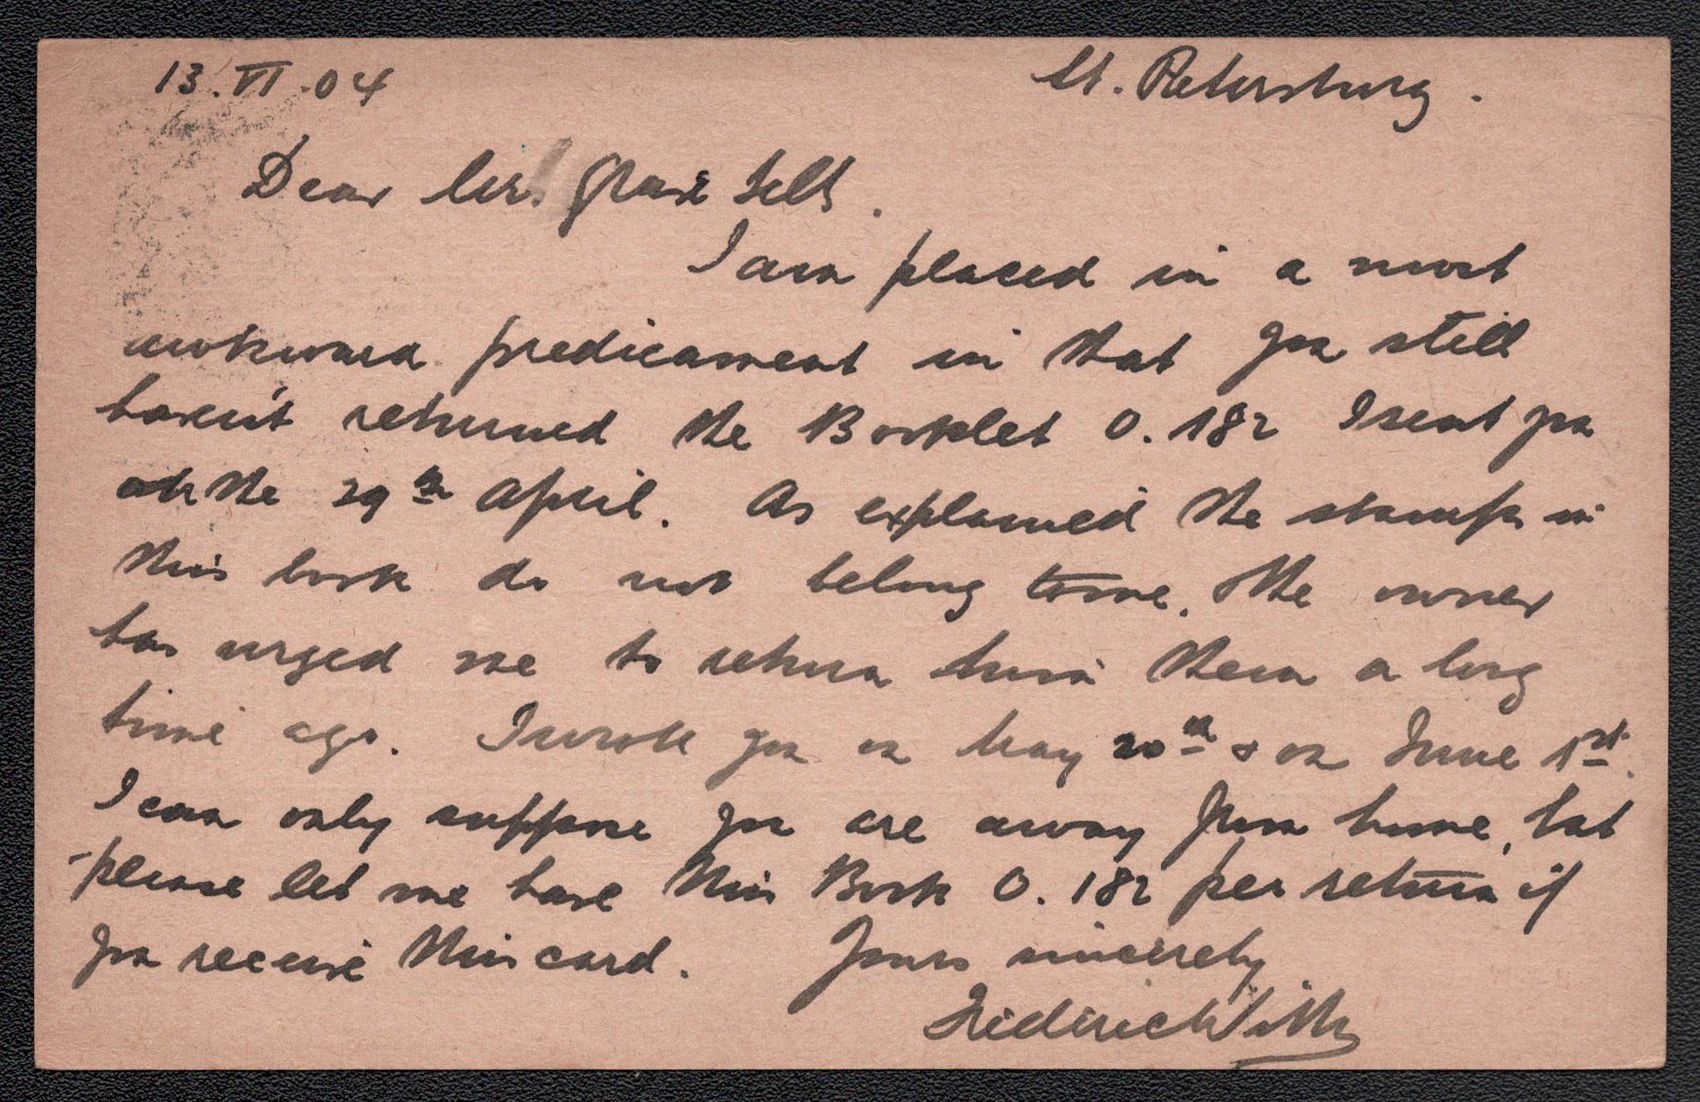 13.VI.04 St. Petersburg.
Dear Mr.
I am placed in a most
awkward predicament in that you still
haven't returned the Booklet O. 182 I sent you
on the 29th April. As explained the stamps in
this book do not belong to me. The owner
has urged me to return him them a long
time ago. I wrote you on May 20th & on June 1st.
I can only suppose you are away from home, but
please let me have this Book O. 182 per return if
you receive this card. Yours sincerely